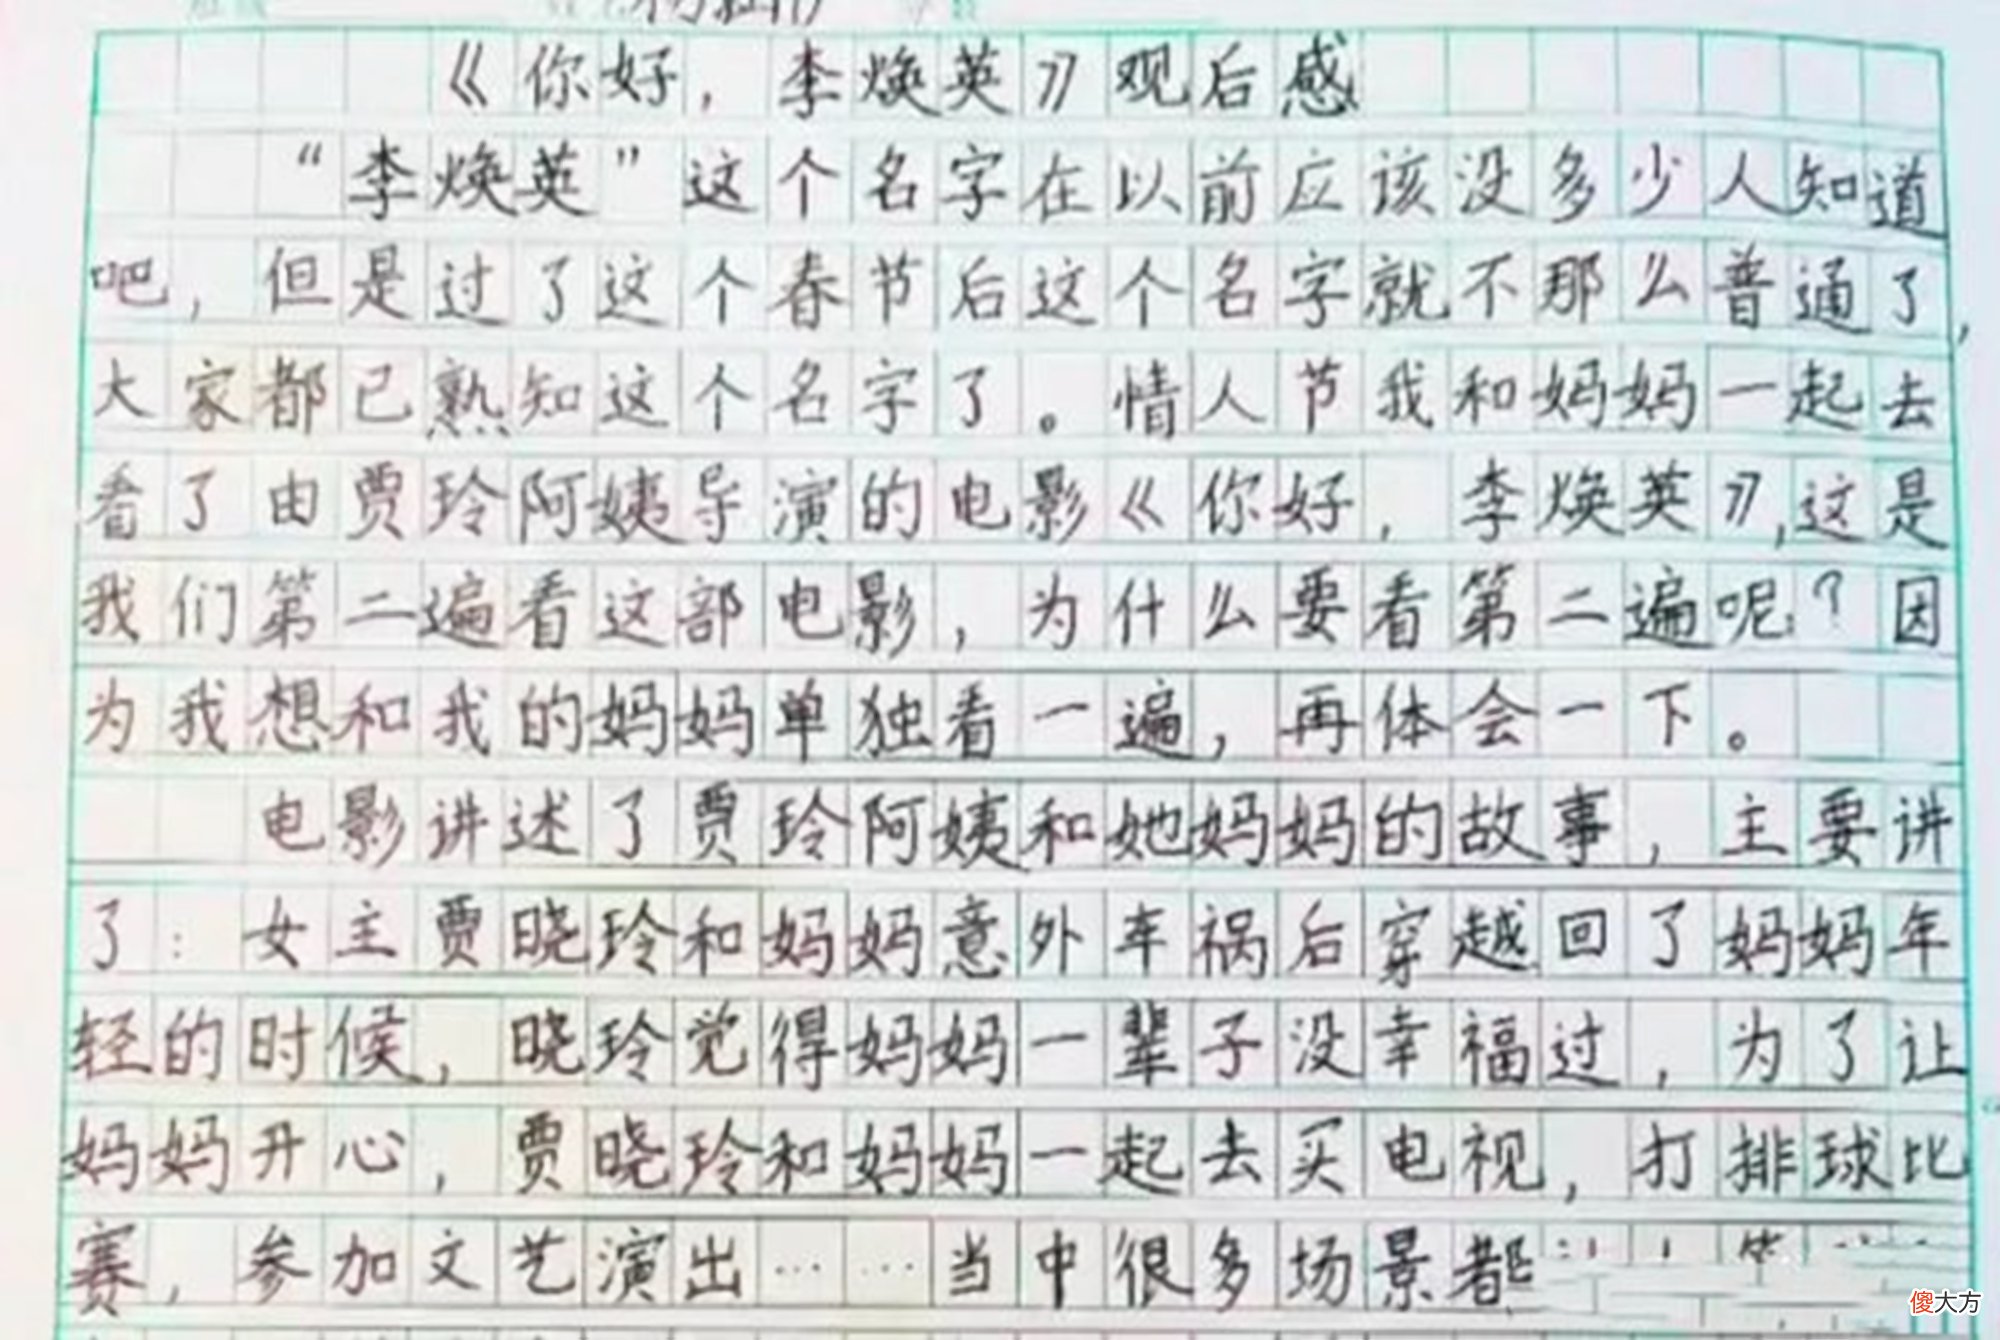 《你好，李焕英》观后感
“李焕英”这个名字在以前应该没多少人知道
吧，但是过了这个春节后这个名字就不那么普通了，
大家都已熟知这个名字了。情人节我和妈妈一起去
看了由贾玲阿姨导演的电影《你好，李焕英》，这是
我们第二遍看这部电影，为什么要看第二遍呢？因
为我想和我的妈妈单独看一遍，再体会一下。
电影讲述了贾玲阿姨和她妈妈的故事，主要讲
了：女主贾晓玲和妈妈意外车祸后穿越回了妈妈年
轻的时候，晓玲觉得妈妈一辈子没幸福过，为了让
妈妈开心，贾晓玲和妈妈一起去买电视，打排球比
赛，参加文艺演出……当中很多场景都
傻大方